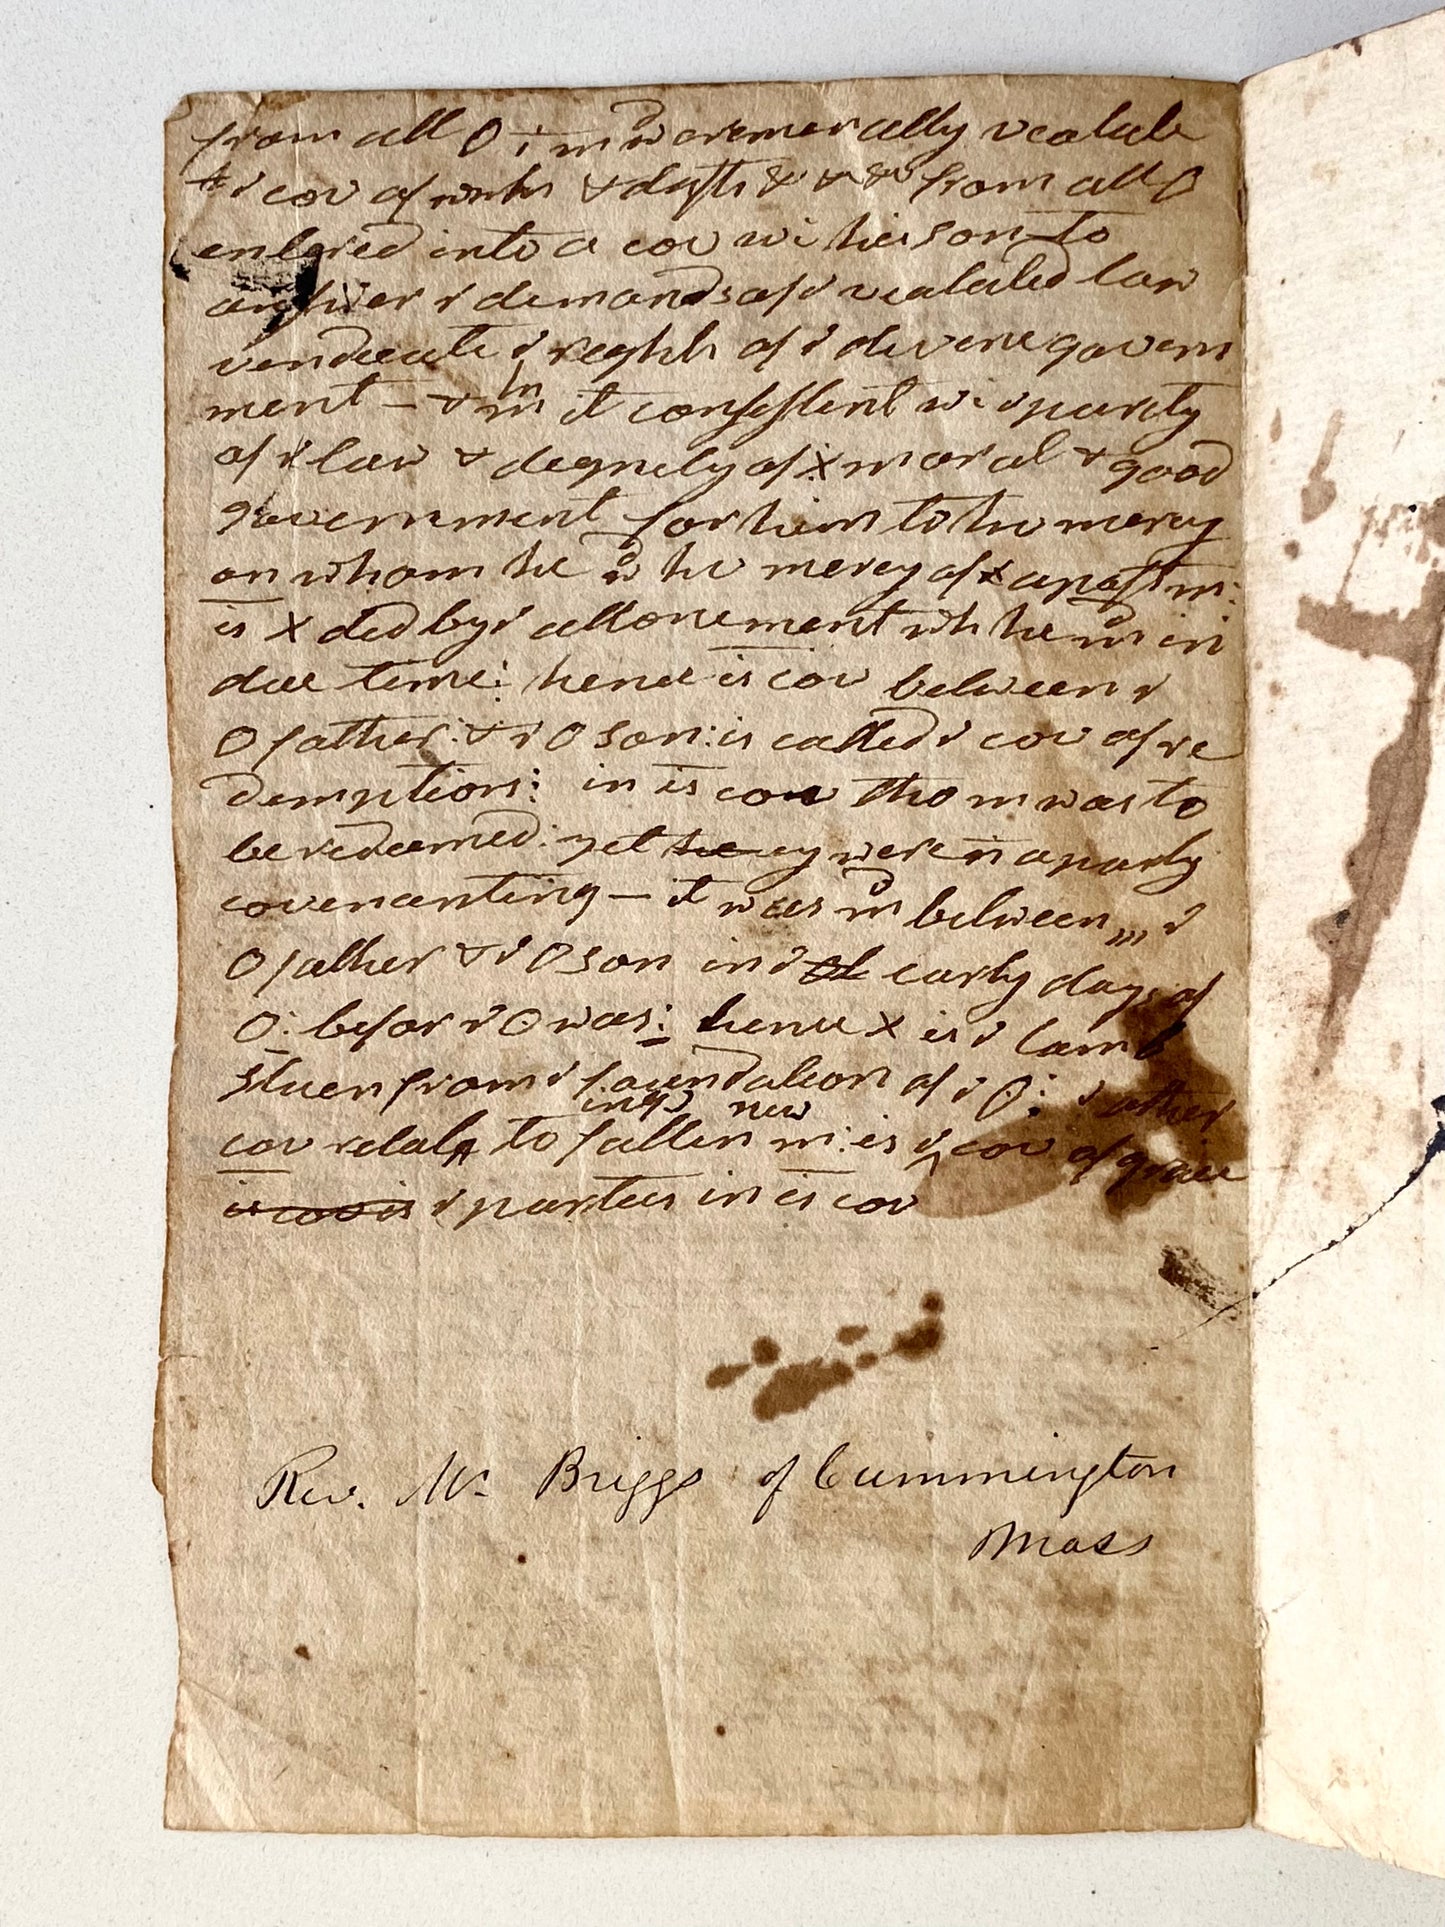 from all O i m wd oremorally vealate
i cov of works & & & from all O
entered into a cov wi his son to
answer i demands of i vealated law
vendicate i reghts of i devine govern
ment – & m it consistent wi i purity
of i law & degnity of x moral & good
government for him to hv mercy
on whom he wd hv mercy of x apost m:
is x did by i attonement wh he in
due time: hence is cov between i
O father: & i O son: is called i cov of re
demption: in is cov tho m was to
be redeemed: yet they were n a party
covenanting – it was between i
O father & i O son in i early days of
O: befor i O was: hence x is i lamb
slaen from i foundation of i O: i other
cov relating to fallen m: is i new cov of grace
is cov is i parties in is cov
Rev. Mr. Briggs of Cummington
Mass